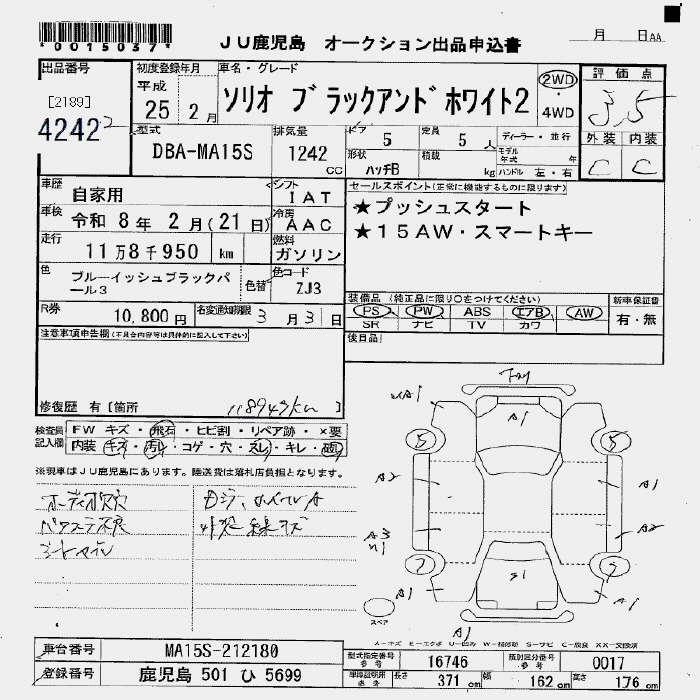 *0015037*
JU鹿児島 オークション出品申込書
月 日AA
出品番号
[2189]
4242
初度登録年月
平成
25 2月
車名・グレード
ソリオ ブラックアンドホワイト2
2WD
・
4WD
評価点
3.5
外装 内装
C C
型式
DBA-MA15S
排気量
1242
CC
ドア
5
定員
5人
形状
ハッチB
積載
kg
ディーラー・並行
モデル年式 年
ハンドル 左・右
車歴
自家用
シフト
IAT
車検
令和 8年 2月(21日)
冷房
AAC
走行
11万8千950 km
燃料
ガソリン
色
ブルーイッシュブラックパール3
色替
色コード
ZJ3
R券
10,800円
名変通知期限
3月3日
セールスポイント(正常に機能するものに限ります)
★プッシュスタート
★15AW・スマートキー
装備品 (純正品に限り○をつけてください)
PS PW ABS エアB AW
SR ナビ TV カワ
新車保証書
有・無
後日品
注意事項申告欄(不具合内容等は具体的に記入して下さい)
修復歴 有[箇所 118949km ]
検査員記入欄
FW キズ・飛石・ヒビ割・リペア跡・×要
内装 キズ・汚れ・コゲ・穴・スレ・キレ・
※現車はJU鹿児島にあります。陸送費は落札店負担となります。
A1
A1
5 5
A2 A1
A3 A2
A1 S1 A1
A1
スペア
A-キズ E-エクボ U-凹み W-補修跡 S-サビ C-腐食 XX-交換済
車台番号
MA15S-212180
登録番号
鹿児島 501 ひ 5699
型式指定番号
参考
16746
類別区分番号
参考
0017
車検証記載
参考
長さ 371cm 幅 162cm 高さ 176cm